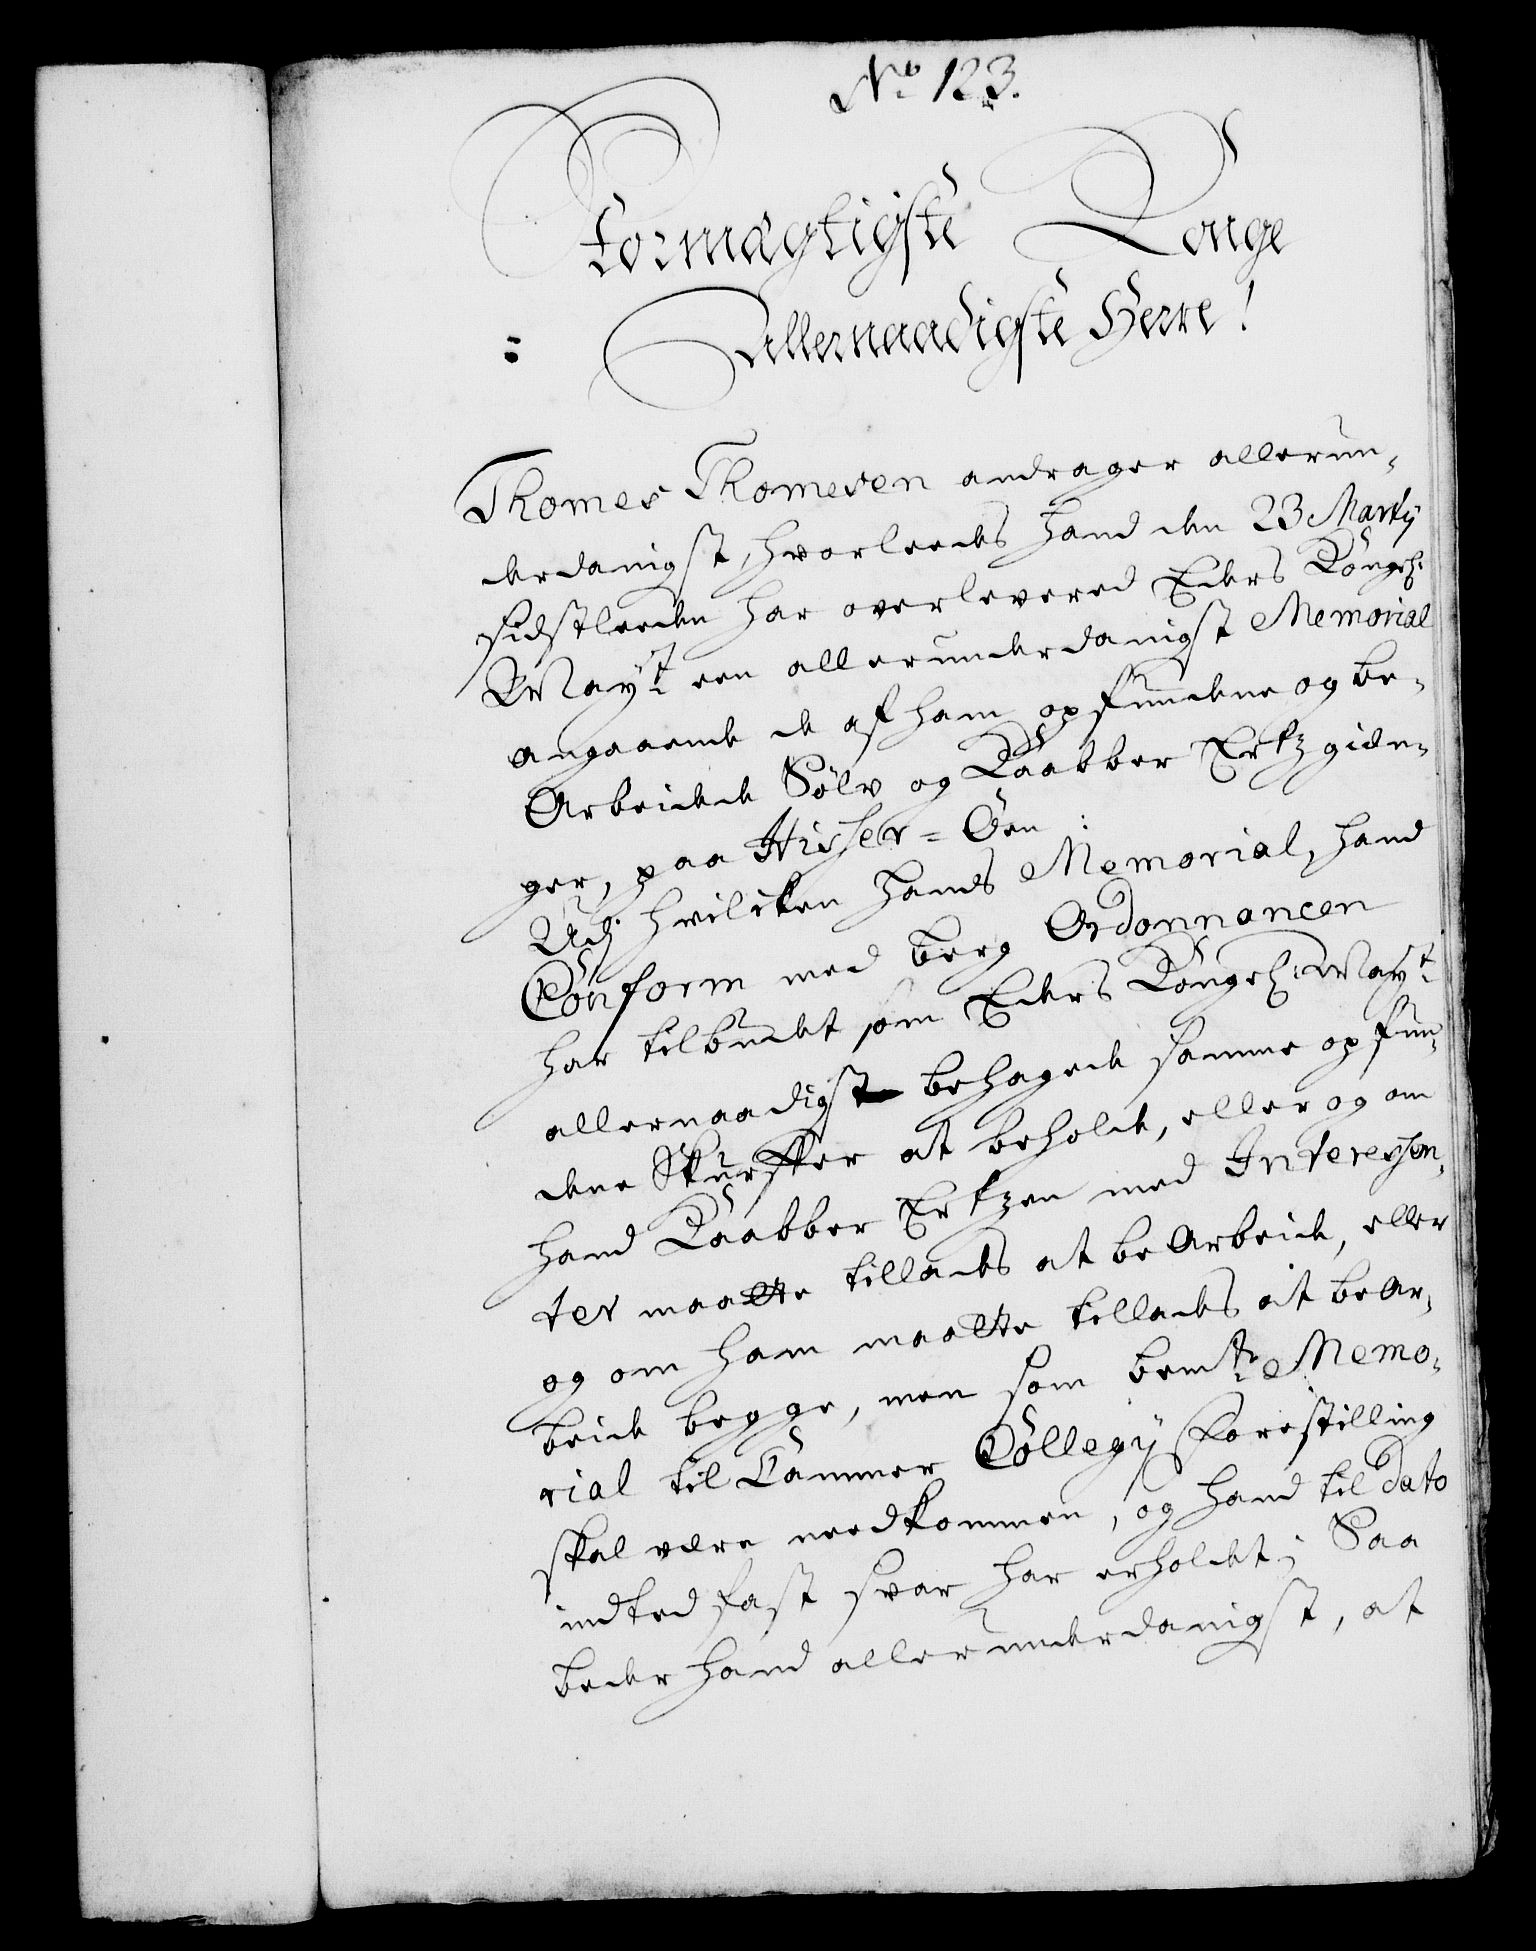 No 123.
Formægtigste Konge
Allernaadigste Herre!
Thomes Thomesen andrager allerun-
derdanigst, hvorleedes hand den 23 Martij
sidstleeden har overlevered Eders Kongel:
Mayt: een allerunderdanigst Memorial
angaaende de af ham opfundene og be-
Arbeidede Sølv og Kaabber Ertz gien-
ger, paa Hisser-Öen:
Udj hvilcken hands Memorial, hand
Conform med berg Ordonnancen
har tilbudet som Eders Kongel: Mayt:
allernaadigst behagede samme opfun-
dene Skurffer at beholde, eller og om
hand Kaabber Ertzen med Interessen-
ter maatte tillades at beArbeide, eller
og om ham maatte tillades at bear-
beide begge, men som bemte: Memo-
rial til Cammer Collegij Forestilling
skal være needkommen, og hand til Dato
indted fast svar har erholdet; Saa
beder hand allerunderdanigst, at